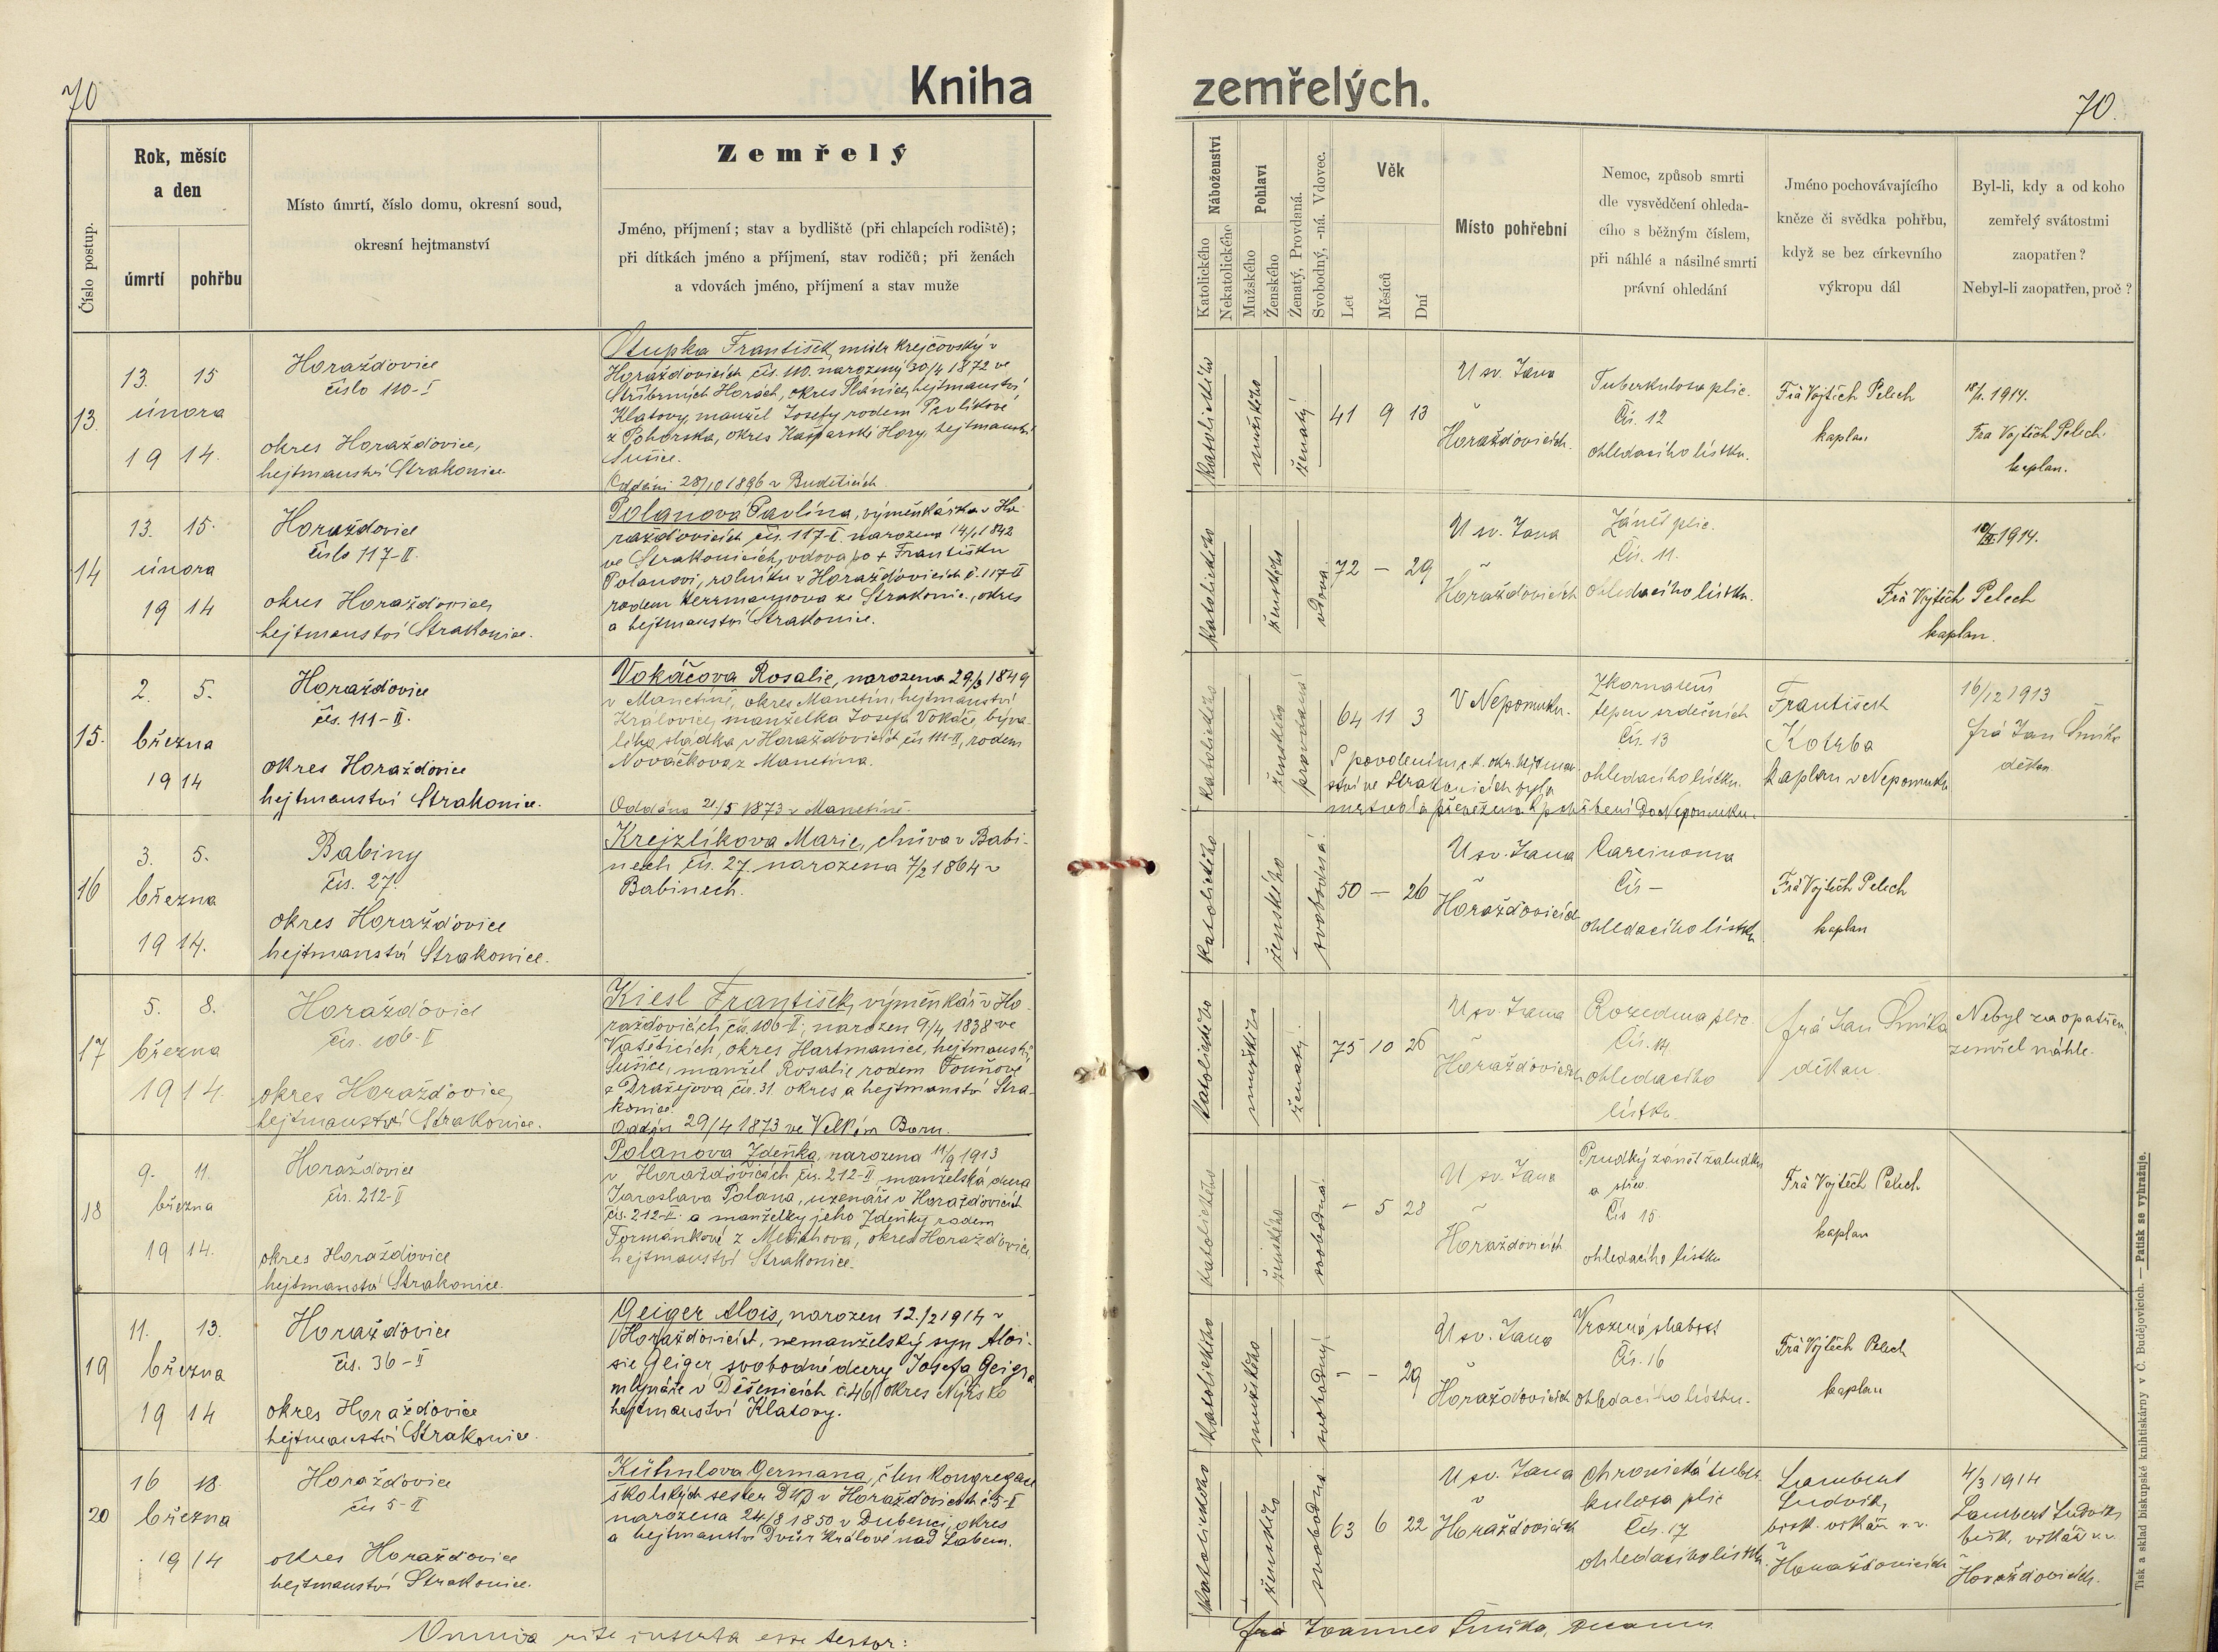 70
Kniha
Číslo postup.
Rok, měsíc
a den
úmrtí
pohřbu
Místo úmrtí, číslo domu, okresní soud,
okresní hejtmanství
Zemřelý
Jméno, příjmení; stav a bydliště (při chlapcích rodiště);
při dítkách jméno a příjmení, stav rodičů; při ženách
a vdovách jméno, příjmení a stav muže
13.
13. 15
února
19 14.
Horažďovice
číslo 110-I
okres Horažďovice,
hejtmanství Strakonice
František, mistr krejčovský v
Horažďovicích čís. 110. narozený 30/4 1872 ve
Stříbrných Horách, okres Plánice, hejtmanství
Klatovy, manžel Josefy rodem Pavlíkové
z Pohorska, okres Kašparské Hory, hejtmanství
Sušice.
Oddáni 28/10 1896 v Budětících
14
13. 15.
února
19 14
Horažďovice
číslo 117-II.
okres Horažďovice,
hejtmanství Strakonice.
Polanova Pavlína, výměnkářka v Ho-
ražďovicích čís. 117-II narozena 14/1 1842
ve Strakonicích, vdova po + Františku
Polanovi, rolníku v Horažďovicích č. 117-II
rodem Herrmannova ze Strakonic, okres
a hejtmanství Strakonice.
15.
2. 5.
března
19 14
Horažďovice
čís. 111-II.
okres Horažďovice
hejtmanství Strakonice.
Vokáčova Rosalie, narozena 29/3 1849
v Manetíně, okres Manetín, hejtmanství
Kralovice, manželka Josefa Vokáče, býva-
lého sládka v Horažďovicích čís 111-II, rodem
Nováčkova z Manetína.
Oddána 21/5 1873 v Manetíně.
16
3. 5.
března
19 14.
Babiny
čís. 27.
okres Horažďovice
hejtmanství Strakonice.
Krejzlíkova Marie, chůva v Babi-
nech čís. 27. narozena 7/2 1864 v
Babinech.
17
5. 8.
března
19 14.
Horažďovice
čís. 106-II
okres Horažďovice,
hejtmanství Strakonice.
Kiesl František, výměnkář v Ho-
ražďovicích, čís. 106-II, narozen 9/4 1838 ve
Vatěticích, okres Hartmanice, hejtmanství
Sušice, manžel Rosalie rodem
z Dražejova čís. 31. okres a hejtmanství Stra-
konice.
Oddán 29/4 1873 ve Velkém Boru.
18
9. 11.
března
19 14.
Horažďovice
čís. 212-II
okres Horažďovice
hejtmanství Strakonice.
Polanova Zdeňka, narozena 11/9 1913
v Horažďovicích čís. 212-II manželská dcera
Jaroslava Polana, uzenáře v Horažďovicích
čís. 212-II. a manželky jeho Zdeňky rodem
Formánkové z Melichova, okres Horažďovice,
hejtmanství Strakonice.
19
11. 13.
března
19 14
Horažďovice
čís. 36-II
okres Horažďovice
hejtmanství Strakonice.
Geiger Alois, narozen 12./2 1914 v
Horažďovicích, nemanželský syn Aloi-
sie Geiger svobodné dcery Josefa Geigra
mlynáře v Děšenicích č. 46 okres Nýrsko
hejtmanství Klatovy.
20
16 18.
března
19 14
Horažďovice
čís 5-II
okres Horažďovice
hejtmanství Strakonice.
Germana, člen kongregace
školských sester v Horažďovicích č 5-I
narozena 24/8 1850 v Dubenci, okres
a hejtmanství Dvůr Králové nad Labem.
Omnia rite inserta esse testor:
zemřelých.
70.
Náboženství
Katolického
Nekatolického
Pohlaví
Mužského
Ženského
Ženatý, Provdaná.
Svobodný, -ná. Vdovec.
Věk
Let
Měsíců
Dní
Místo pohřební
Nemoc, způsob smrti
dle vysvědčení ohleda-
cího s běžným číslem,
při náhlé a násilné smrti
právní ohledání
Jméno pochovávajícího
kněze či svědka pohřbu,
když se bez církevního
výkropu dál
Byl-li, kdy a od koho
zemřelý svátostmi
zaopatřen?
Nebyl-li zaopatřen, proč?
katolického
mužského
ženatý
41 9 13
U sv. Jana
v
Horažďovicích.
Tuberkulosa plic.
Čís. 12
ohledacího lístku.
Frà Vojtěch Pelech
kaplan
1914.
Fra Vojtěch Pelech
kaplan.
katolického
ženského
vdova
72 – 29
U sv. Jana
v
Horažďovicích
Zánět plic.
Čís. 11.
ohledacího lístku.
1914.
Frà Vojtěch Pelech
kaplan.
katolického
ženského
provdaná
64 11 3
V Nepomuku.
S povolením c. k. okr. hejtman-
ství ve Strakonicích byla
mrtvola převezena k pohřbení do Nepomuku.
Zkornatění
tepen srdečních
Čís. 13
ohledacího lístku.
František
Kotrba
kaplan v Nepomuku
16/12 1913
frà Jan Šmíka
děkan
katolického
ženského
svobodná
50 – 26
U sv. Jana
v
Horažďovicích
Carcinoma
Čís –
ohledacího lístku
Frà Vojtěch Pelech
kaplan
katolického
mužského
ženatý.
75 10 26
U sv. Jana
v
Horažďovicích
Rozedma plic.
Čís. 14.
ohledacího
lístku.
frà Jan Šmíka
děkan.
Nebyl zaopatřen,
zemřel náhle.
katolického
ženského
svobodná
– 5 28
U sv. Jana
v
Horažďovicích
Prudký zánět žaludku
a střev.
Čís 15.
ohledacího lístku
Frà Vojtěch Pelech
kaplan
katolického
mužského
svobodný.
– – 29
U sv. Jana
v
Horažďovicích
Vrozená slabost
Čís. 16
ohledacího lístku.
Frà Vojtěch Pelech
kaplan
katolického
ženského
svobodná
63 6 22
U sv. Jana
v
Horažďovicích
Chronická tuber-
kulosa plic
Čís. 17
ohledacího lístku.
Lambert
Ludvík,
bisk. vikář v. v.
v Horažďovicích
4/3 1914
Lambert Ludvík,
bisk. vikář v. v.
v Horažďovicích.
frà Joannes Šmíka, Decanus
Tisk a sklad biskupské knihtiskárny v Č. Budějovicích. — Patisk se vyhražuje.